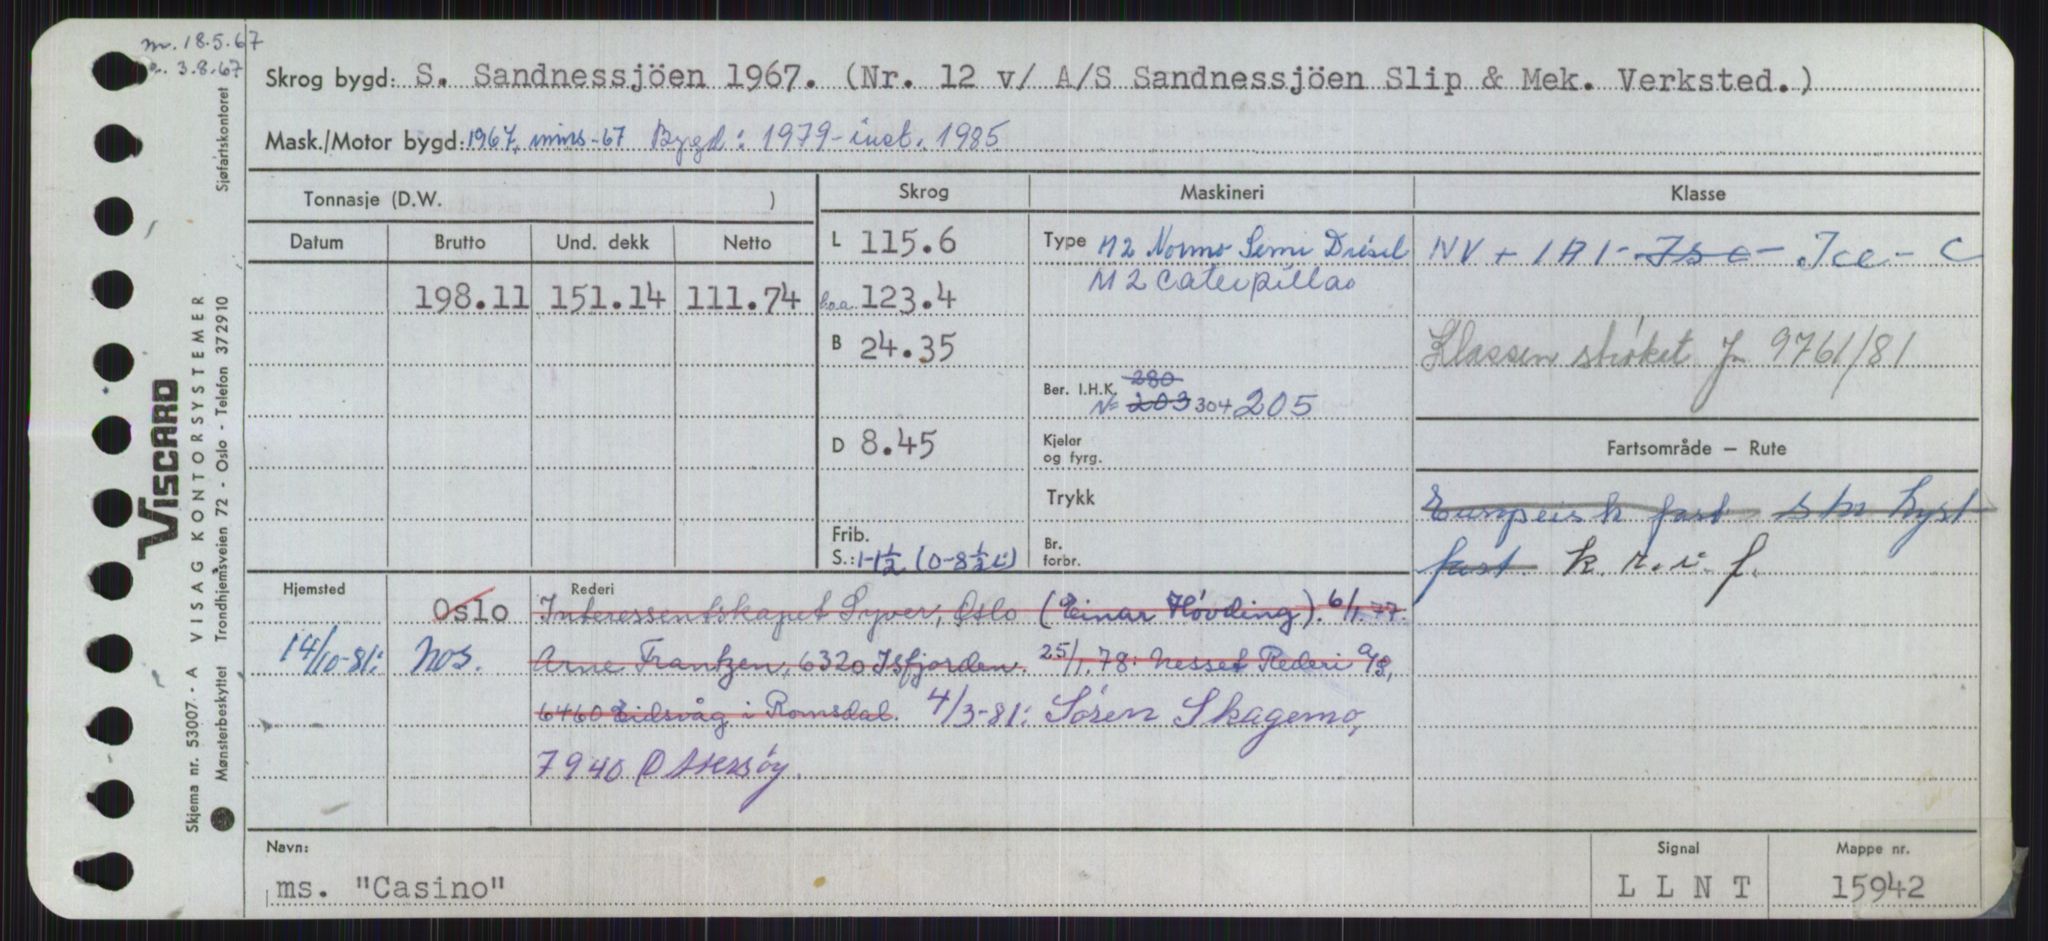 m. 18.5.67
3.8.67
Skrog bygd: S. Sandnessjöen 1967. (Nr. 12 v/ A/S Sandnessjöen Slip & Mek. Verksted.)
Mask./Motor bygd: 1967, Bygd: 1979 - inst. 1985
Tonnasje (D.W. )
Skrog
Maskineri
Klasse
Datum
Brutto
Und. dekk
Netto
198.11
151.14
111.74
L 115.6
123.4
B 24.35
D 8.45
Frib.
S.: 1-1½ (0-8½
Type M2 Normo Semi Diesel
M2 Caterpillar
Ber. I.H.K. 280
N= 203 304 205
Kjeler
og fyrg.
Trykk
Br.
forbr.
NV + 1A1 - Ice - C
Klassen strøket J 9761/81
Fartsområde — Rute
Europeisk fart stn kyst
fart. k. r. i. f.
Hjemsted
Rederi
Oslo
Interessentskapet Syver, Oslo (Einar Hövding). 6/1.77.
14/10-81: Nos.
Arne Frantzen, 6320 Isfjorden. 25/1.78: Nesset Rederi A/S,
6460 Eidsvåg i Romsdal. 4/3-81: Sören Skagemo,
7940 Ottersöy.
Navn:
ms. "Casino"
Signal
L L N T
Mappe nr.
15942
Sjøfartskontoret
VISCARD
VISAG KONTORSYSTEMER
Trondhjemsveien 72 - Oslo - Telefon 372910
Skjema nr. 53007. - A
Mønsterbeskyttet